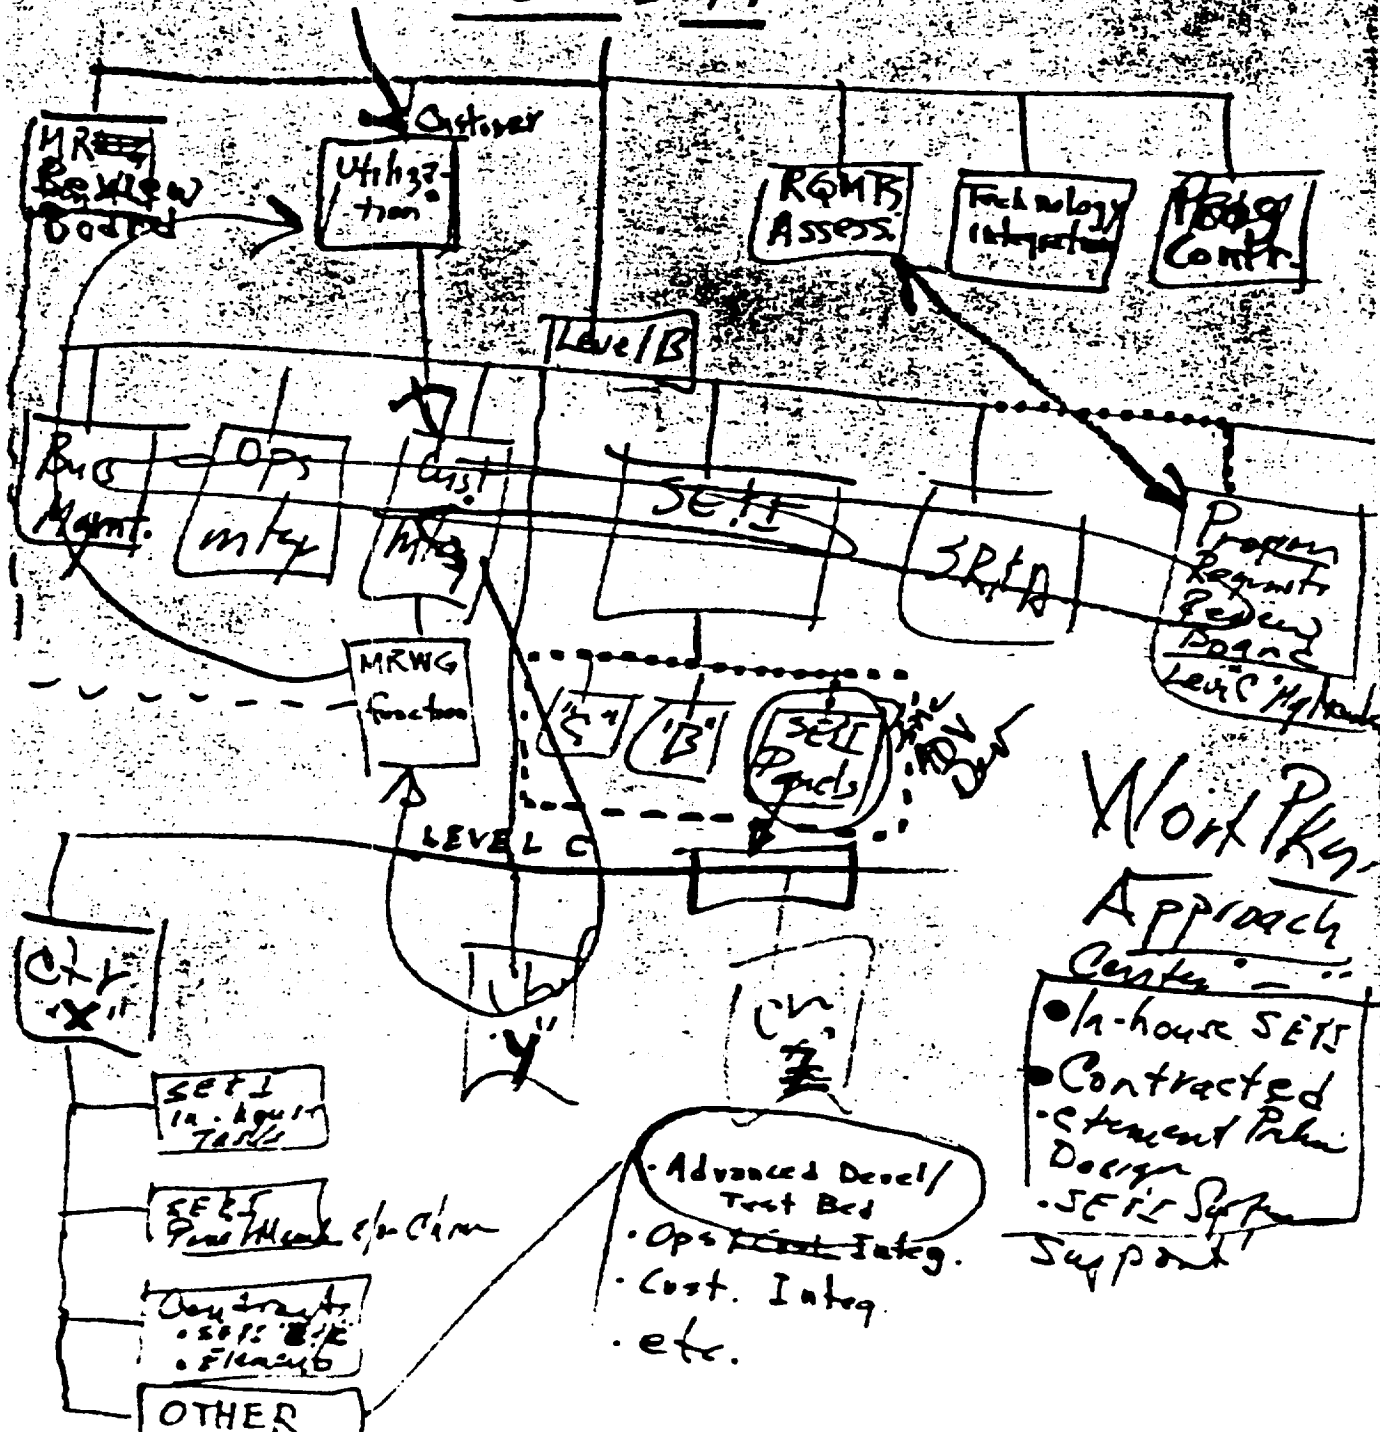 Customer
MR
Review
Board
Utiliza-
tion
RQMTS
Assess.
Technology
Integration
Prog
Contr.
Level B
Bus
Mgmt.
Ops
integ
Cust.
Integ
SE&I
SR&A
Program
Requmts
Review
Board
Level C
MRWG
function
"C"
"B"
SE&I
Panels
ADV
Dev
LEVEL C
Work Pkg.
Approach
Center
• In-house SE&I
• Contracted
• element Prelim
Design
• SE&I System
Support
Ctr
"X"
"Y"
SE&I
In-house
Tasks
SE&I
Panel
Contracts
• SE&I
• Elements
OTHER
• Advanced Devel/
Test Bed
• Ops Integ.
• Cust. Integ.
• etc.